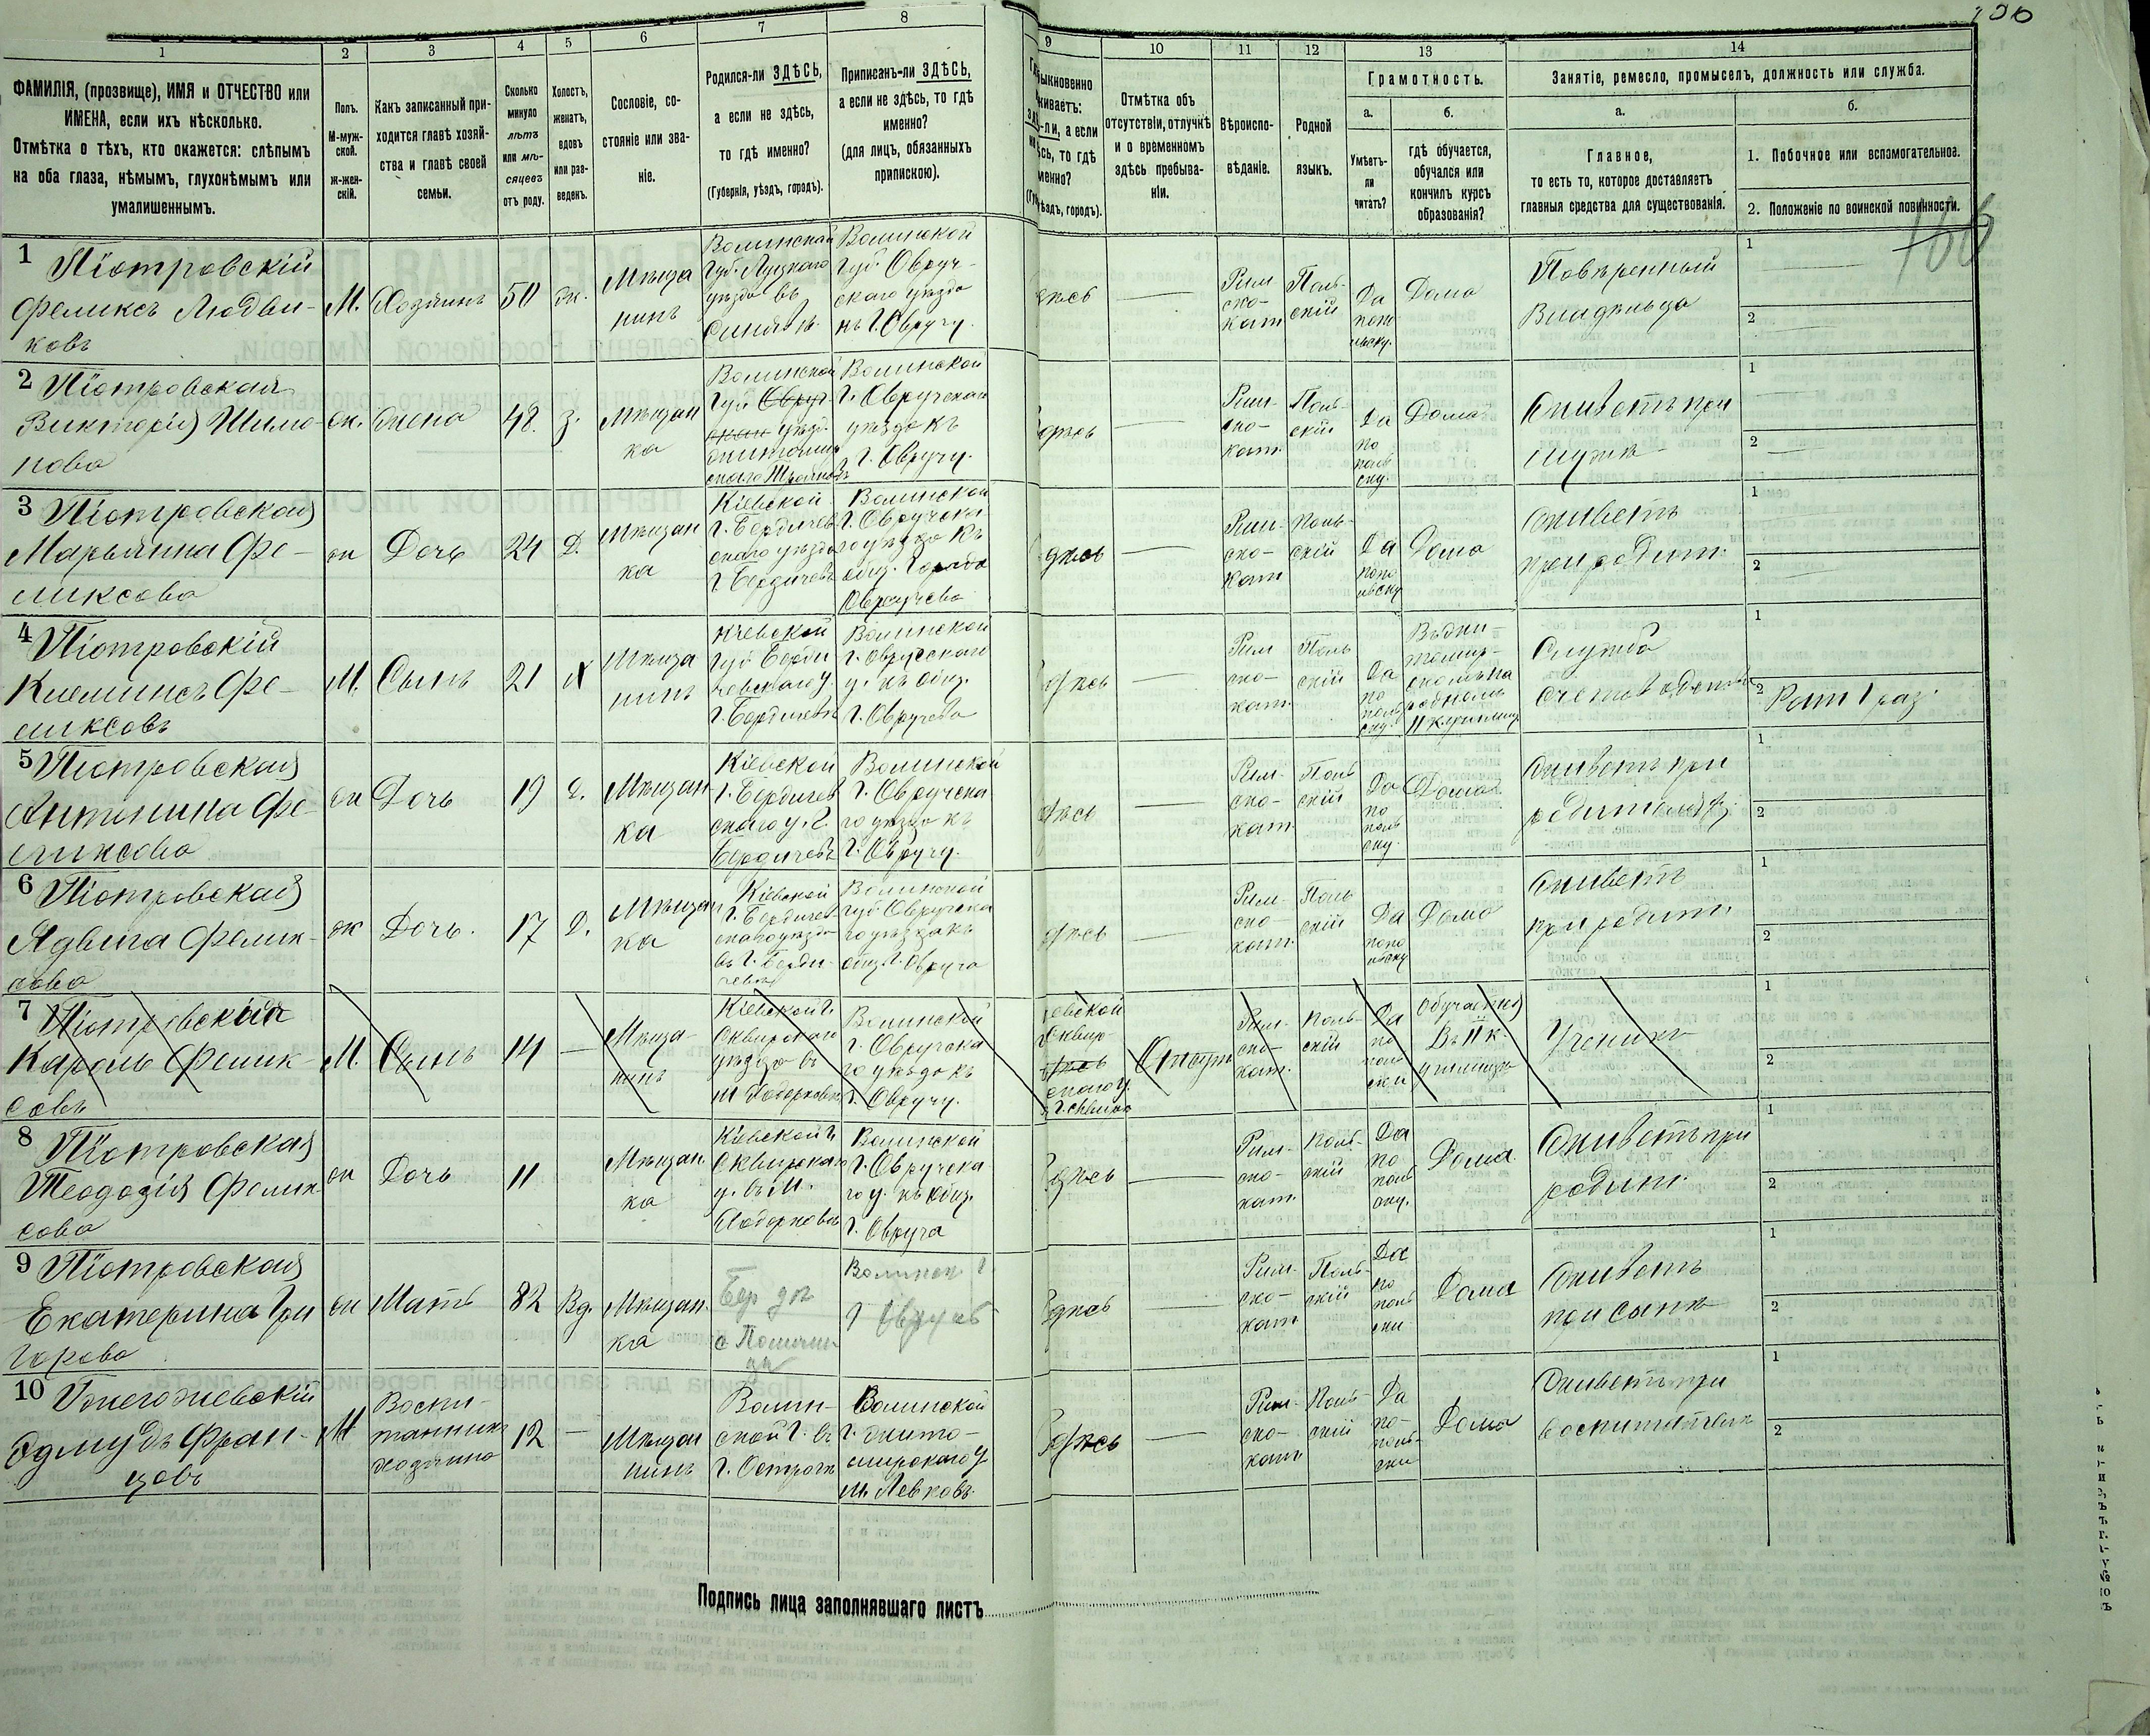 1 2 3 4 5 6 7 8 9 10 11 12 13 14
ФАМИЛІЯ, (прозвище), ИМЯ и ОТЧЕСТВО или
ИМЕНА, если ихъ нѣсколько.
Отмѣтка о тѣхъ, кто окажется: слѣпымъ
на оба глаза, нѣмымъ, глухонѣмымъ или
умалишеннымъ.
Полъ.
М-муж-
ской.
ж-жен-
скій.
Какъ записанный при-
ходится главѣ хозяй-
ства и главѣ своей
семьи.
Сколько
минуло
лѣтъ
или мѣ-
сяцевъ
отъ роду.
Холостъ,
женатъ,
вдовъ
или раз-
веденъ.
Сословіе, со-
стояніе или зва-
ніе.
Родился-ли ЗДѢСЬ,
а если не здѣсь,
то гдѣ именно?
(Губернія, уѣздъ, городъ).
Приписанъ-ли ЗДѢСЬ,
а если не здѣсь, то гдѣ
именно?
(для лицъ, обязанныхъ
припискою).
ыкновенно
живаетъ:
-ли, а если
сь, то гдѣ
менно?
ѣздъ, городъ).
Отмѣтка объ
отсутствіи, отлучкѣ
и о временномъ
здѣсь пребыва-
ніи.
Вѣроиспо-
вѣданіе.
Родной
языкъ.
Грамотность.
а.
Умѣетъ-
ли
читать?
б.
гдѣ обучается,
обучался или
кончилъ курсъ
образованія?
Занятіе, ремесло, промыселъ, должность или служба.
а.
Главное,
то есть то, которое доставляетъ
главныя средства для существованія.
б.
1. Побочное или вспомогательное.
2. Положеніе по воинской повинности.
166
1 Піотровскій
Феликсъ Людви-
ковъ
М.
Хозяинъ
50
ж.
Мѣща
нинъ
Волинской
Губ. Луцкаго
уѣзда въ
Волинской
Губ. Овруч-
скаго уѣзда
къ Г. Овручу.
Рим
ско-
кат
Поль-
скій
Да
Дома
Повѣренный
Владѣльца
1
2
2 Піотровская
Викторія Шимо-
нова
жена
48.
З.
Мѣщан
ка
Волинской
Губ. Овруч-
уѣзд.
Волинской
Г. Овручскаго
уѣзда къ
Г. Овручу.
Рим-
ско-
кат.
Поль-
скій
Да
по
поль
ску.
Дома
Живетъ при
мужѣ
1
2
3 Піотровская
Марьянна Фе-
ликсова
ж
Дочь
24
Д.
Мѣщан
ка
Кіевской
Г. Бердичев
скаго уѣзда
Г. Бердичевъ
Волинской
Г. Овручска
го уѣзда къ
общ. Города
Овручева
Рим-
ско-
кат
Поль-
скій
Да
Дома
Живетъ
при родит.
1
2
4 Піотровскій
Клеменсъ Фе-
ликсовъ
М.
Сынъ
21
Х
Мѣща
нинъ
Кіевской
Губ Берди
чевскаго у.
Г. Бердичевъ
Волинской
Г. Овручскаго
у. къ общ.
Г. Овручева
Рим
ско-
кат.
Поль
скій
Да
по
поль
ску.
Служба
1
2 Рат 1 раз.
5 Піотровская
Антонина Фе-
ликсова
ж
Дочь
19
Д.
Мѣщан
ка
Кіевской
Г. Бердичев
скаго у. Г.
Бердичевъ
Волинской
Г. Овручска
го уѣзда къ
Г. Овручу.
Рим-
ско-
кат.
Поль
скій
Да
по
поль
ску.
Дома
Живетъ при
1
2
6 Піотровская
Ядвига Феликсова
ж
Дочь.
17
Д.
Мѣщан
ка
Кіевской
Г. Бердичев
скаго уѣзда
въ Г. Берди-
чевъ
Волинской
губ Овручска
го уѣзда къ
общ. Г. Овруча
Рим
ско-
кат.
Поль
скій
Да
Дома
Живетъ
при родит.
1
2
7 Піотровскій
Кароль Фелик-
совъ
М.
Сынъ
14
Мѣща-
нинъ
Кіевской г.
Сквирскаго
уѣзда въ
м Ходорковъ
Волинской
г. Овручска
го уѣзда къ
г. Овручу.
Рим-
ско-
кат.
Поль-
скій
Да
по
поль
ски
Обучается
Въ II к.
училища
Ученикъ
1
2
8 Піотровская
Теодозія Феликсова
ж
Дочь
11
Мѣщан
ка
Кіевской г.
Сквирскаго
у. въ М.
Ходорковъ
Волинской
Г. Овручска
го у. къ общ.
Г. Овруча
Рим-
ско-
кат.
Поль-
скій
Да
по
поль
ску.
Дома
Живетъ при
родит.
1
2
9 Піотровская
Екатерина Гри
горова
ж
Мать
82
Вд.
Мѣщан.
ка
Волинск Г
Рим-
ско-
кат
Поль-
скій
Да
по
поль
ски
Дома
Живетъ
при сынѣ
1
2
10
Эдмундъ Фран-
цовъ
М
Воспи-
танникъ
хозяина
12
Мѣщан
нинъ
Волин-
ской Г. въ
г. Острогъ
Волинской
г. Жито-
мирскаго у
м. Левковъ.
Рим-
ско-
кат
Поль-
скій
Да
по-
поль-
ски
Дома
Живетъ при
воспитателѣ
1
2
Подпись лица заполнявшаго листъ